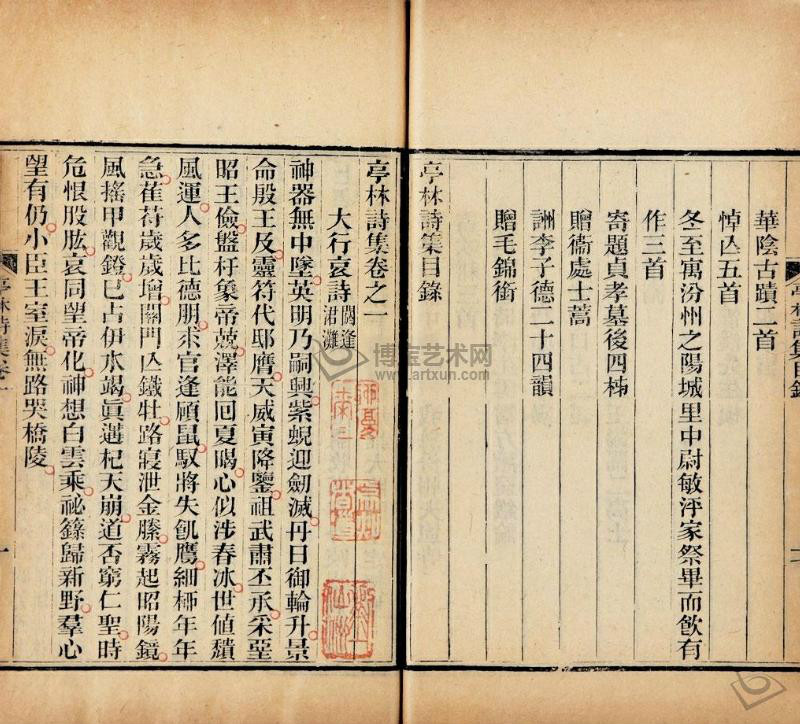 華陰古蹟二首
悼亾五首
冬至寓汾州之陽城里中尉敏泙家祭畢而飲有
作三首
寄題貞孝墓後四柹
贈衞處士蒿
詶李子德二十四韻
贈毛錦銜
亭林詩集目錄
亭林詩集卷之一
大行哀詩 閼逢君灘
神器無中墜英明乃嗣興紫蜺迎劒滅丹日御輪升景
命殷王及靈符代邸膺天威寅降鑒祖武肅丕承采堊
昭王儉盤杅象帝兢澤能囘夏暍心似涉春冰世値穨
風運人多比德朋求官逢碩鼠馭將失飢鷹細桺年年
急萑苻歲歲增關門亾鐵牡路寢泄金縢霧起昭陽鏡
風搖甲觀鐙已占伊水竭眞遘杞天崩道否窮仁聖時
危恨股肱哀同望帝化神想白雲乘祕籙歸新野羣心
望有仍小臣王室淚無路哭橋陵
博宝艺术网
www.artxun.com